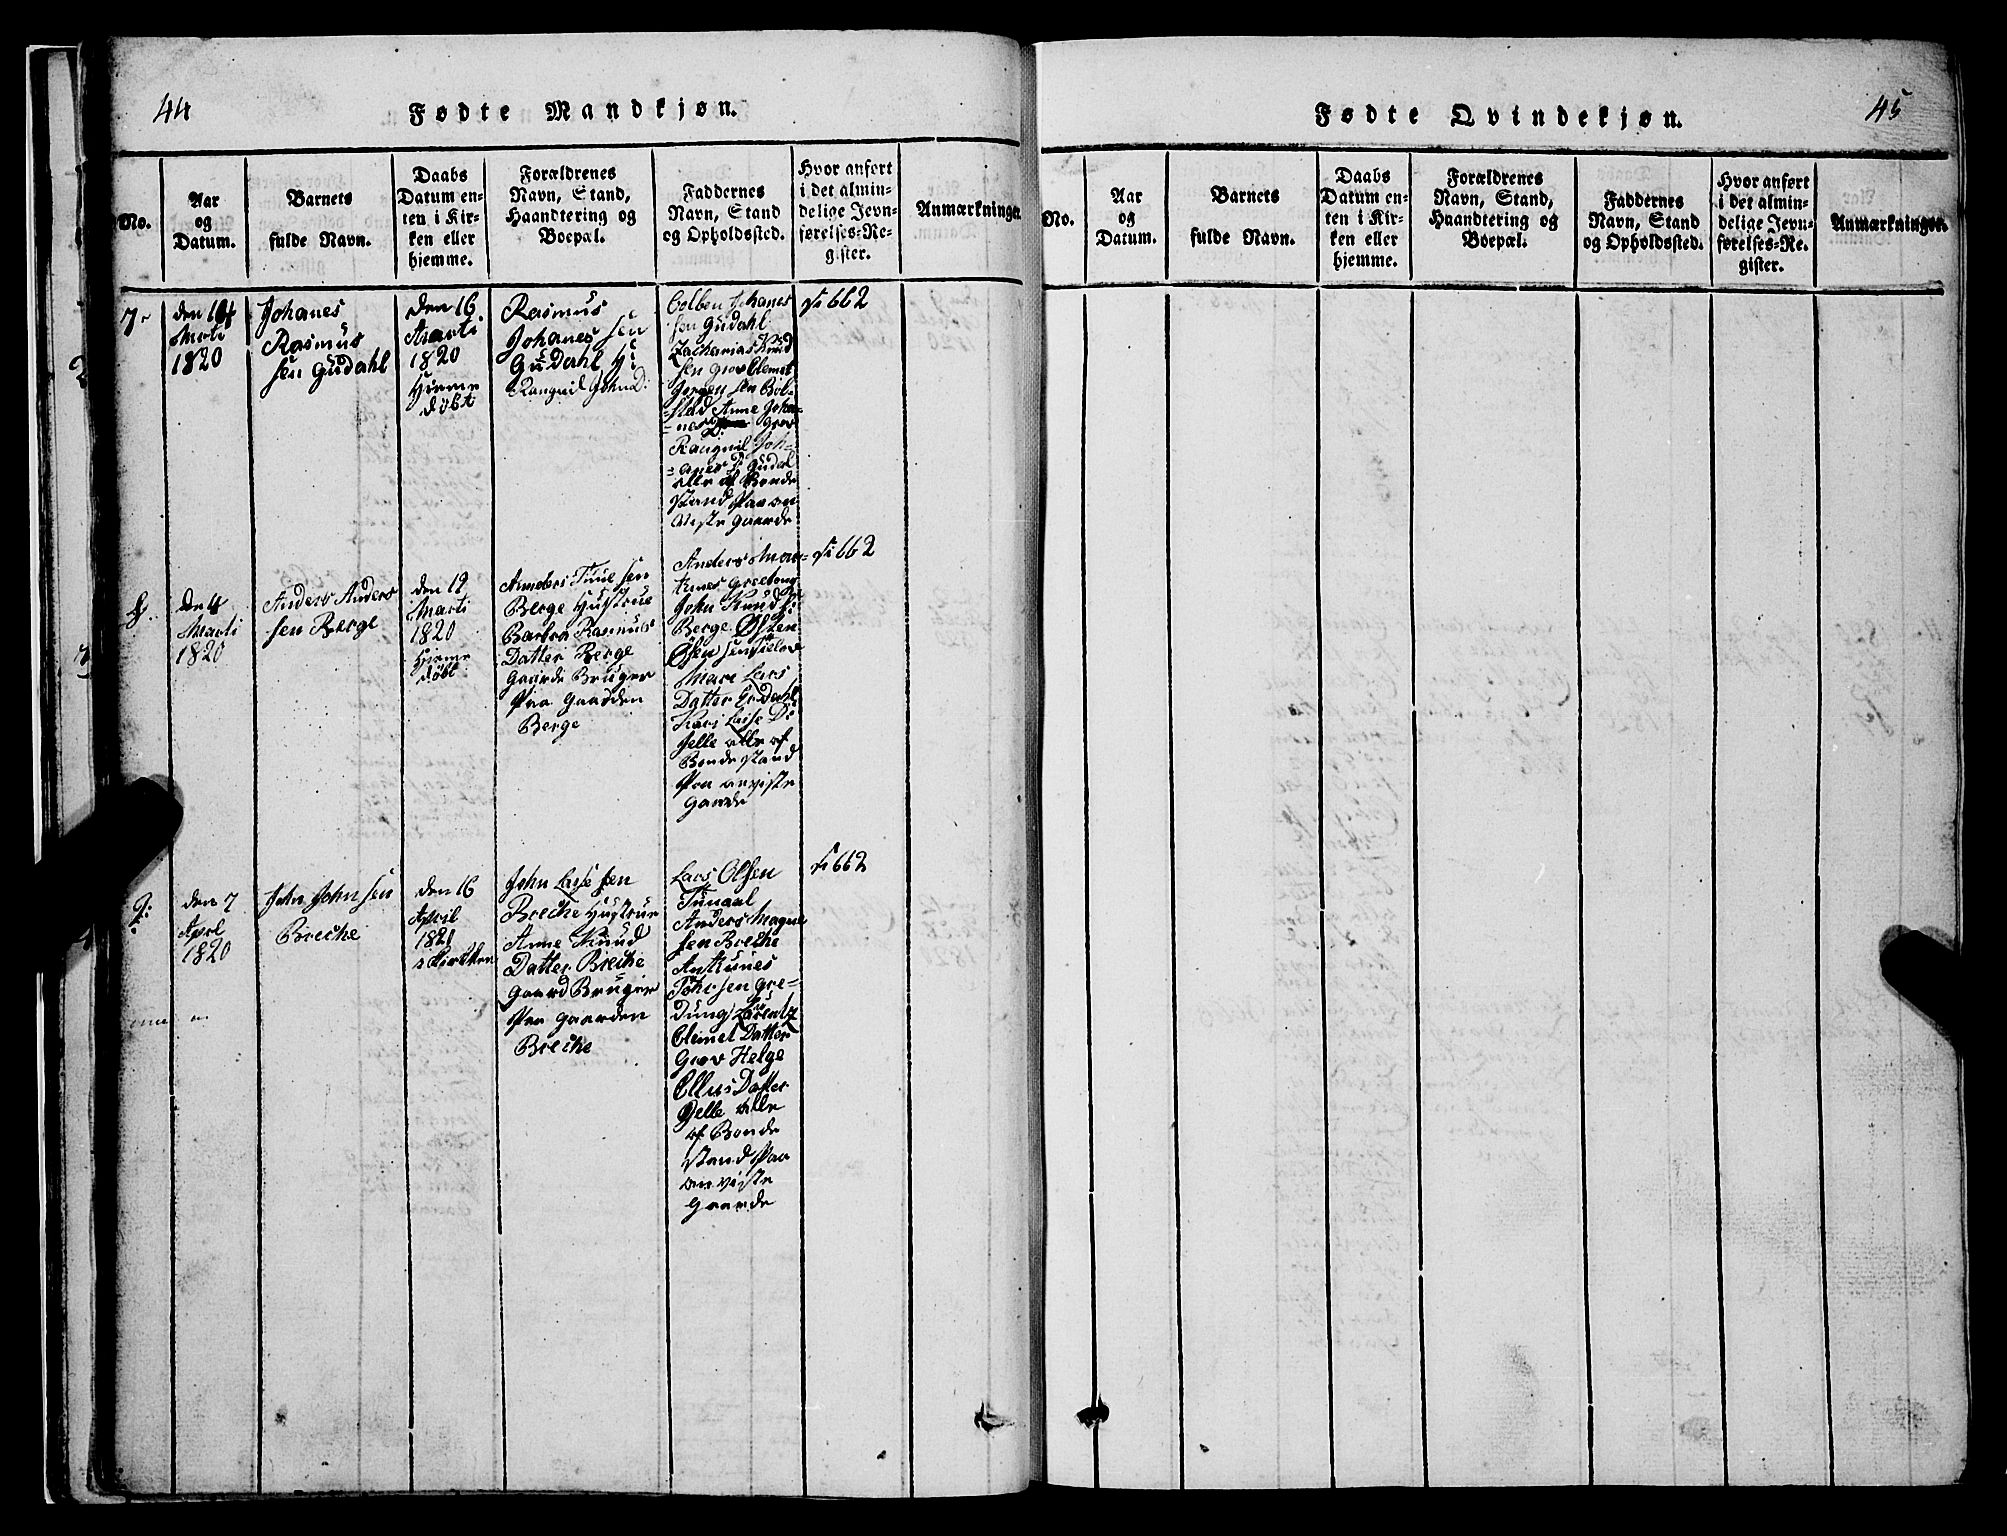 44
Fødte Mandkjøn.
No.
Aar
og
Datum.
Barnets
fulde Navn.
Daabs
Datum en-
ten i Kir-
ken eller
hjemme.
Forældrenes
Navn, Stand,
Haandtering og
Boepæl.
Faddernes
Navn, Stand
og Opholdssted.
Hvor anført
i det almin-
delige Jevn-
førelses-Re-
gister.
Anmærkninger.
7
den
Marti
1820
Johanes
Rasmus
sen Gudahl
den 16
Marti
1820
Hieme
døbt
Rasmus
Johanes sen
Gudahl H:
Rangnil John D:
Colben Johanes
sen Gudahl
Zacharias Knud
sen Grov Clemet
Jorgen sen Bol-
stad Anne Johan-
nes D: Grov
Rangnil Joh-
anes D: Gudal
alle af Bonde
stand Paa an
viste gaarde
Si 662
8.
den 4
Marti
1820
Anders Anders
sen Berge
den 19
Marti
1820
Hieme
døbt
Anders Tuue sen
Berge Hustrue
Barbra Rasmus
Datter Berge
gaarde Bruger
Paa Gaarden
Berge
Anders
John Knud
Berge
Mari Lars
Datter
Kari Lasse D:
Jelle alle af
Bonde stand
Paa anviste
gaarde
Si 662
9:
den 7
Aprl
1820
John John sen
Breche
den 16
April
1820
i Kirken
John Lasse sen
Breche Hustrue
Anne Knud
Datter Breche
Gaard Bruger
Paa Gaarden
Breche
Lars Olsen
Tunaal
Anders Magne
sen Breche
Antkunes
Johr sen Gre-
dung Larentz
Clemet Datter
Grov Helge
Ellus Datter
Jelle alle
af Bonde
stand Paa
anviste
gaarde
Si 662
45
Fødte Qvindekjøn.
No.
Aar
og
Datum.
Barnets
fulde Navn.
Daabs
Datum en-
ten i Kir-
ken eller
hjemme.
Forældrenes
Navn, Stand,
Haandtering og
Boepæl.
Faddernes
Navn, Stand
og Opholdssted.
Hvor anført
i det almin-
delige Jevn-
førelses-Re-
gister.
Anmærkninger.